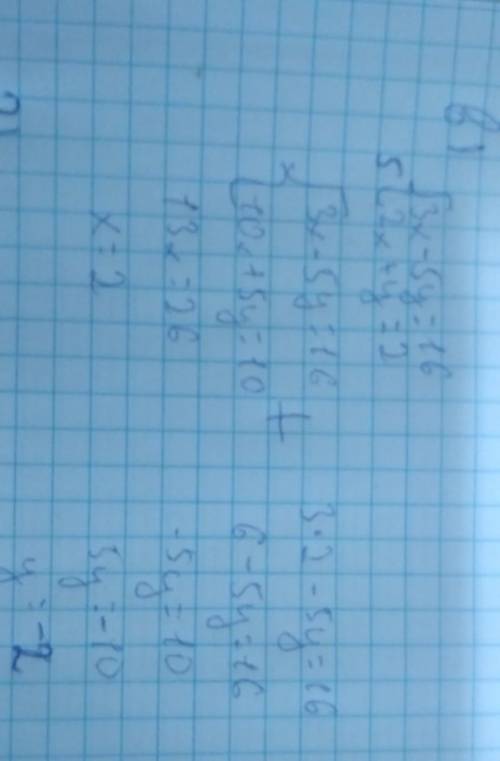 б)
{3x - 5y = 16
5 {2x + y = 2
{3x - 5y = 16
{10x + 5y = 10 +
13x = 26
x = 2
3·2 - 5y = 16
6 - 5y = 16
-5y = 10
5y = -10
y = -2